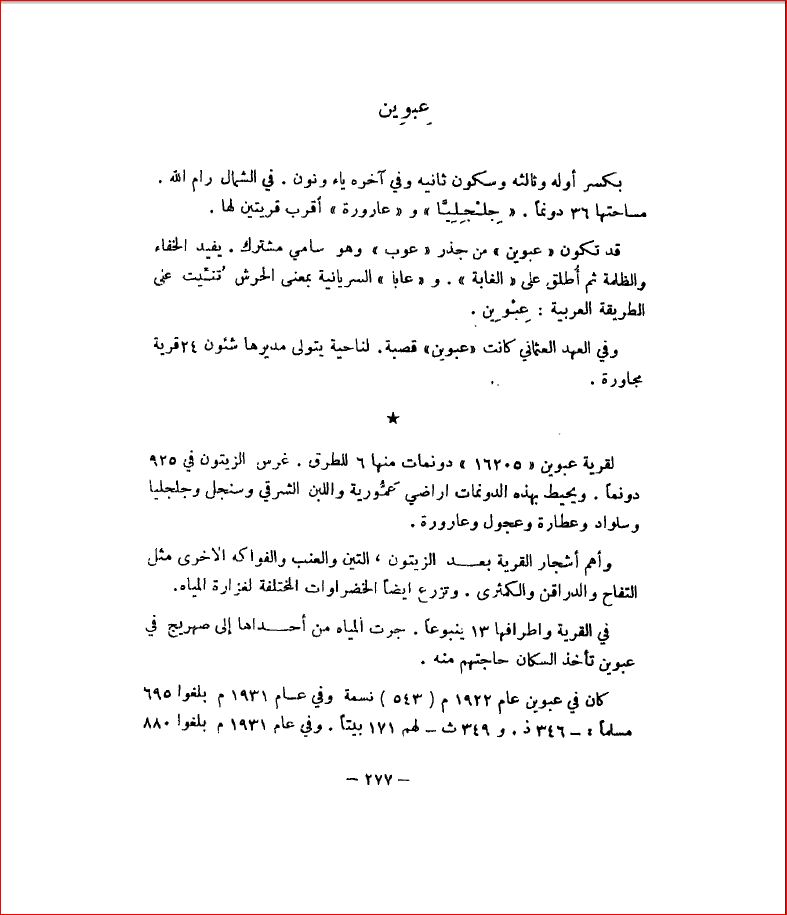 عِبوِين
بكسر أوله وثالثه وسكون ثانيه وفي آخره ياء ونون . في الشمال رام الله .
مساحتها ٣٦ دونماً . « جِلْجِلِيَّا » و « عارورة » أقرب قريتين لها .
قد تكون « عبوين » من جذر « عوب » وهو سامي مشترك . يفيد الخفاء
والظلمة ثم أُطلق على « الغابة » . و « عابا » السريانية بمعنى الحرش ثُنّيت على
الطريقة العربية : عِبْوِين .
وفي العهد العثماني كانت «عبوين» قصبة . لناحية يتولى مديرها شئون ٢٤قرية
مجاورة .
★
لقرية عبوين « ١٦٢٠٥ » دونمات منها ٦ للطرق . غرس الزيتون في ٩٢٥
دونماً . ويحيط بهذه الدونمات اراضي عمُّورية واللبن الشرقي وسنجل وجلجليا
وسلواد وعطارة وعجول وعارورة .
وأهم أشجار القرية بعــد الزيتون ، التين والعنب والفواكه الاخرى مثل
التفاح والدراقن والكمثرى . وتزرع ايضاً الخضراوات المختلفة لغزارة المياه.
في القرية واطرافها ١٣ ينبوعاً . جرت المياه من أحــداها إلى صهريج في
عبوين تأخذ السكان حاجتهم منه .
كان في عبوين عام ١٩٢٢ م ( ٥٤٣ ) نسمة وفي عـام ١٩٣١ م بلغوا ٦٩٥
مسلماً : ــ ٣٤٦ ذ . و ٣٤٩ ث ــ لهم ١٧١ بيتاً . وفي عام ١٩٣١ م بلغوا ٨٨٠
– ٢٧٧ –